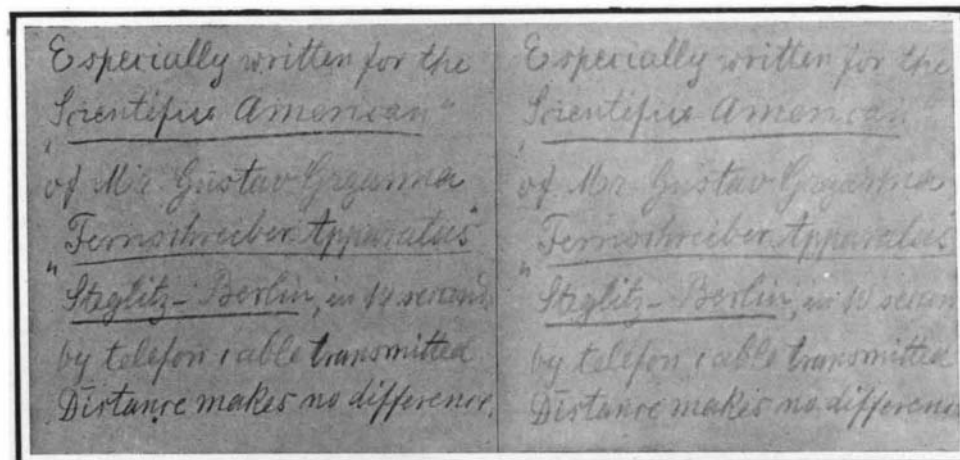 Especially written for the
„Scientific American"
of Mr. Gustav Grzanna
„Fernschreiber Apparatus"
Steglitz-Berlin, in 10 seconds
by telefon cable transmitted
Distance makes no difference.
Especially written for the
„Scientific American"
of Mr. Gustav Grzanna
„Fernschreiber Apparatus
Steglitz-Berlin, in 10 secon
by telefon cable transmitted
Distance makes no differenc